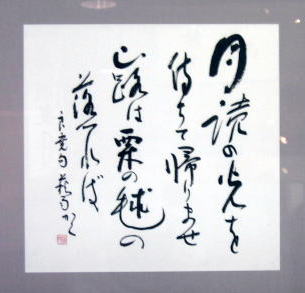 月読の光を
待ちて帰りませ
山路は栗の毬の
落つれば
良寛句